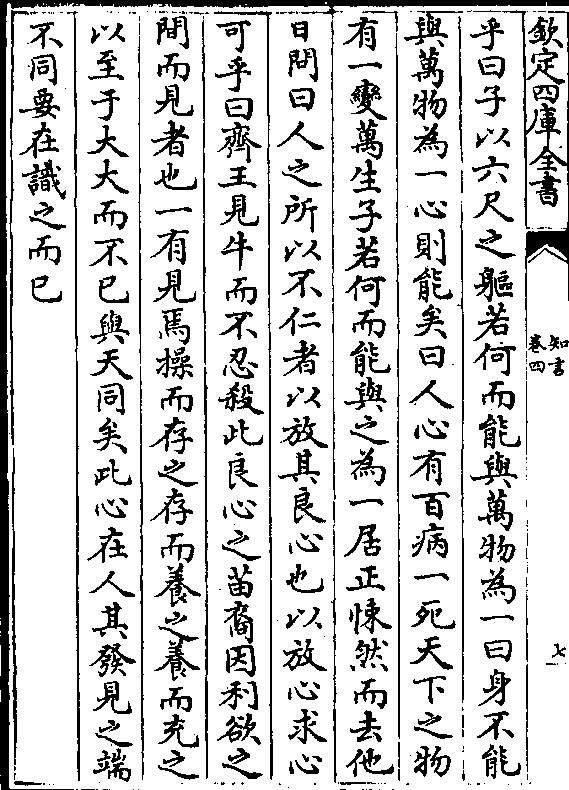 欽定四庫全書
知言
卷四
七
乎曰子以六尺之軀若何而能與萬物為一曰身不能
與萬物為一心則能矣曰人心有百病一死天下之物
有一變萬生子若何而能與之為一居正悚然而去他
日問曰人之所以不仁者以放其良心也以放心求心
可乎曰齊王見牛而不忍殺此良心之苗裔因利欲之
間而見者也一有見焉操而存之存而養之養而充之
以至于大大而不已與天同矣此心在人其發見之端
不同要在識之而已